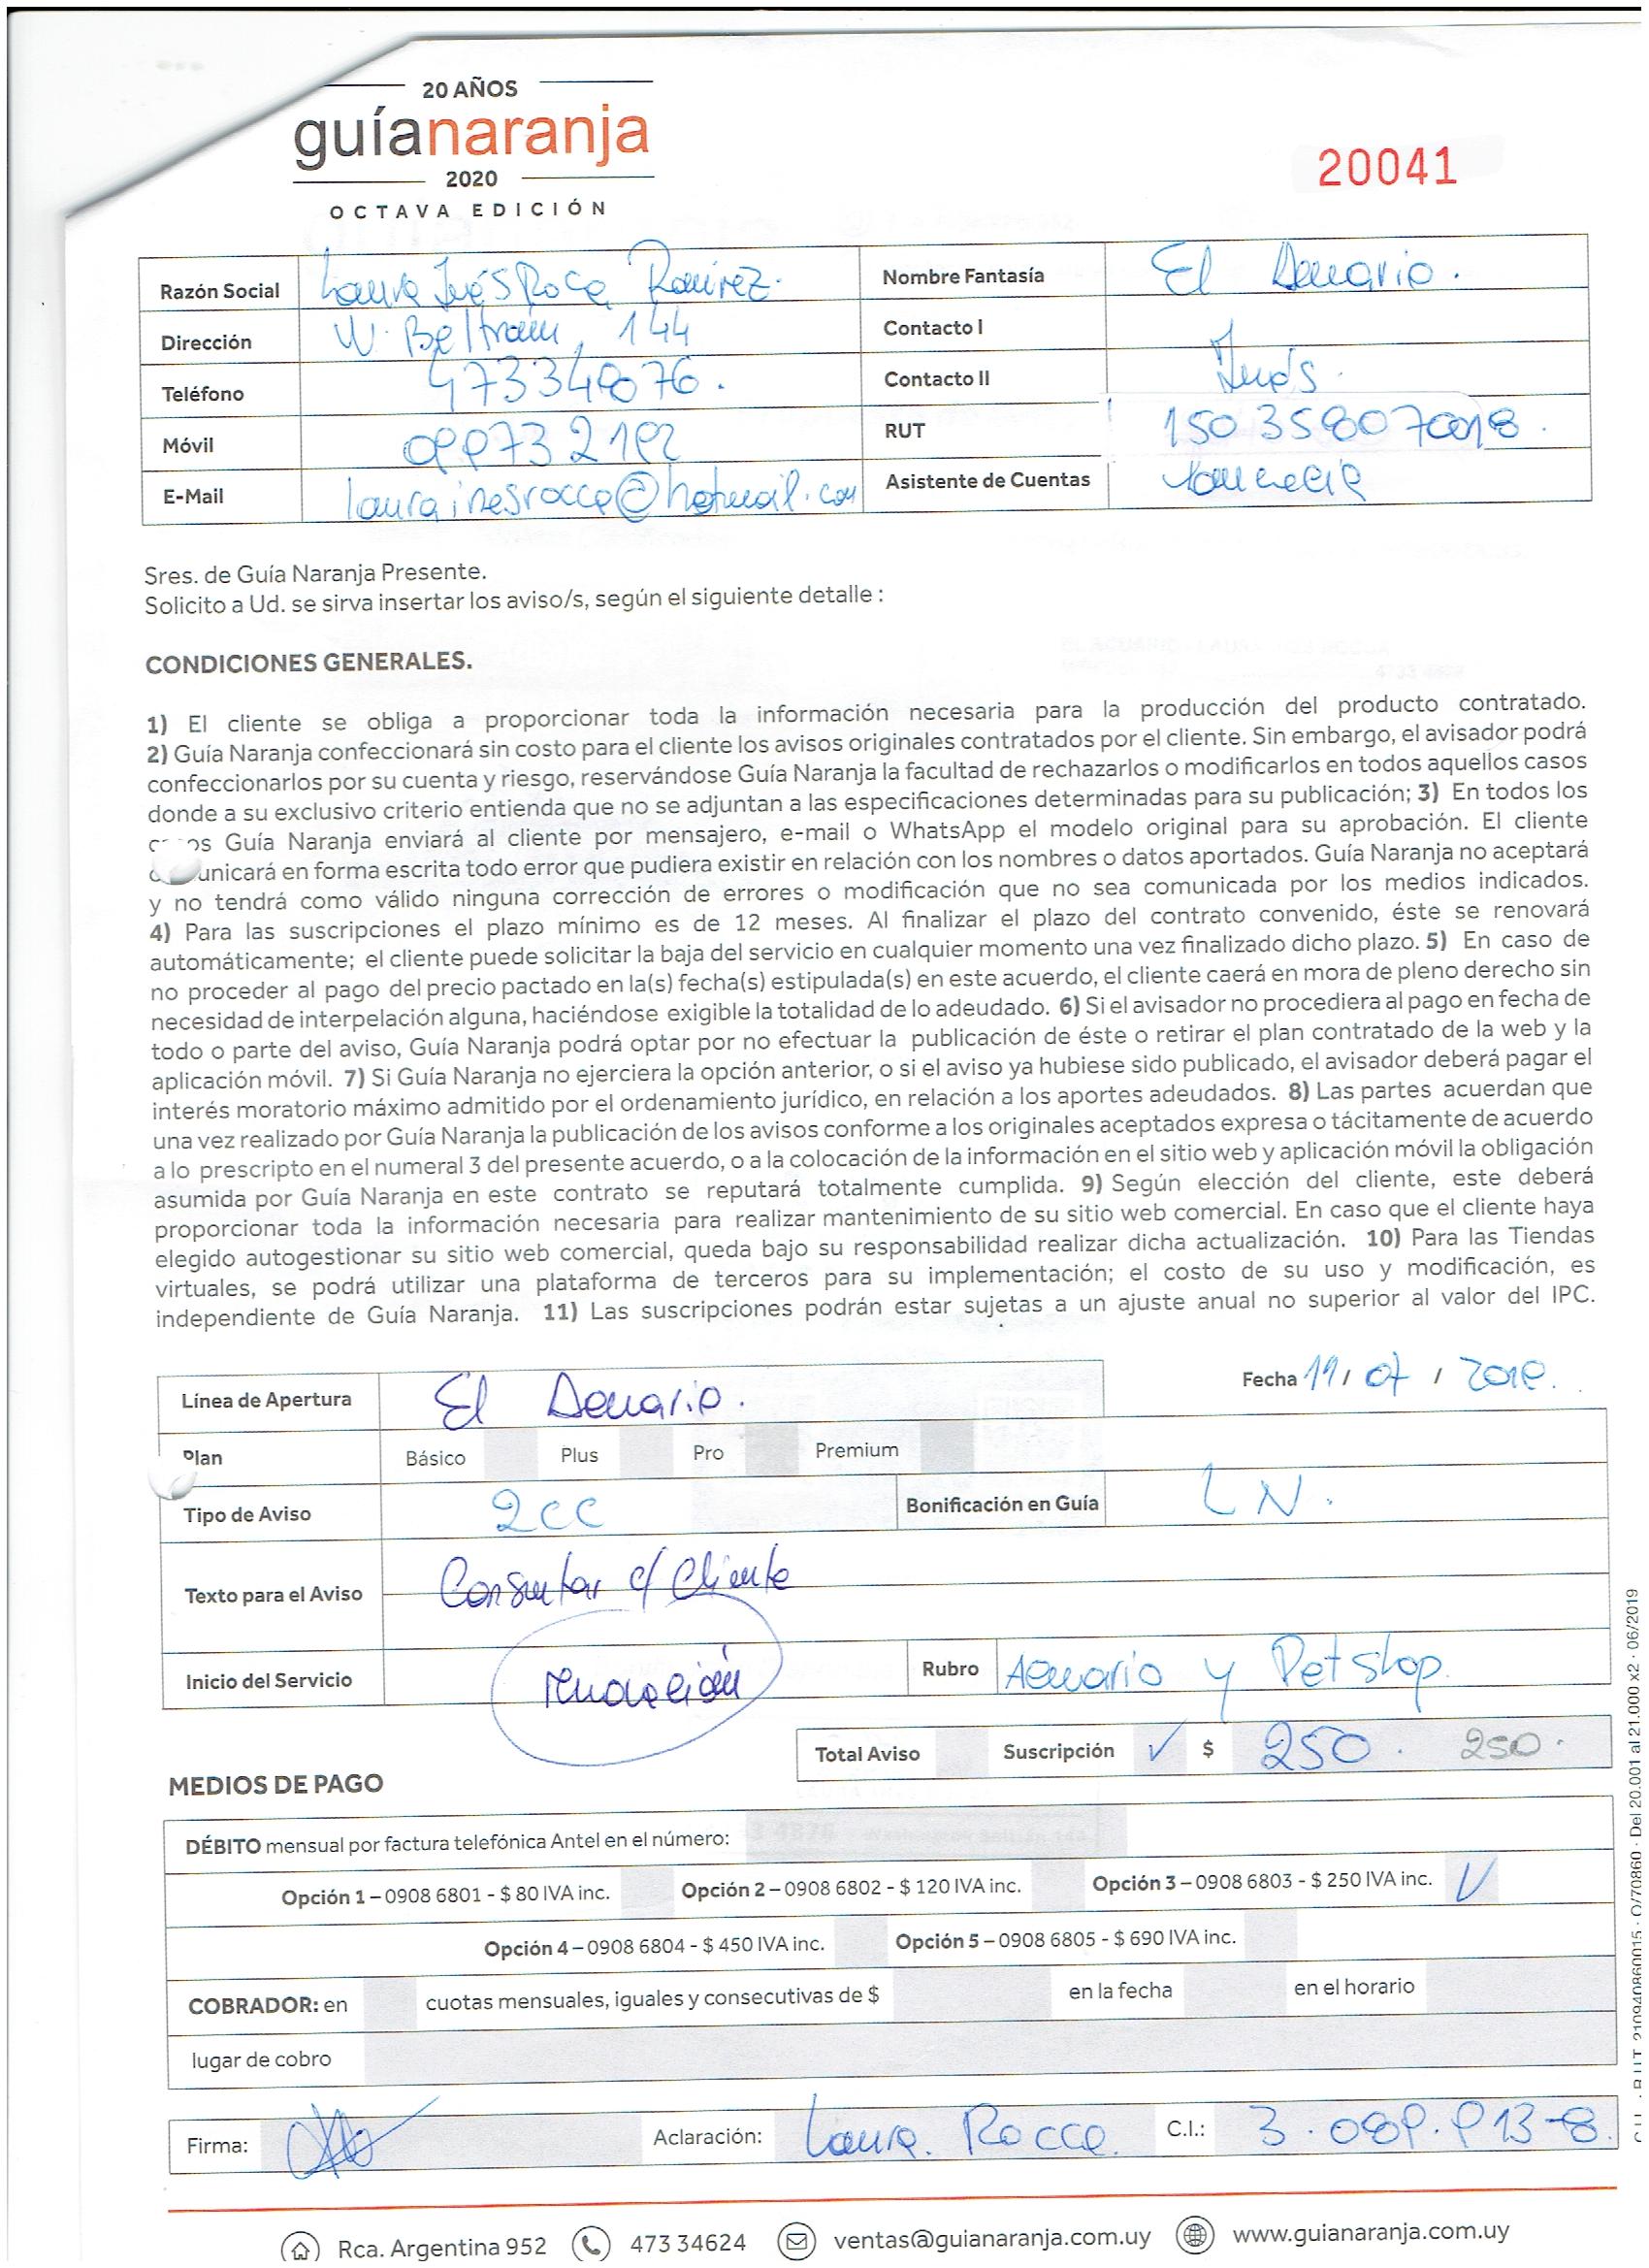 20 AÑOS
guíanaranja
2020
OCTAVA EDICIÓN
20041
Razón Social Laura Inés Roca Ramírez. Nombre Fantasía El Acuario.
Dirección W. Beltram, 144 Contacto I
Teléfono Contacto II Inés.
Móvil 099732192 RUT
E-Mail laurainesrocca@hotmail.com Asistente de Cuentas
Sres. de Guía Naranja Presente.
Solicito a Ud. se sirva insertar los aviso/s, según el siguiente detalle :
CONDICIONES GENERALES.
1) El cliente se obliga a proporcionar toda la información necesaria para la producción del producto contratado.
2) Guía Naranja confeccionará sin costo para el cliente los avisos originales contratados por el cliente. Sin embargo, el avisador podrá
confeccionarlos por su cuenta y riesgo, reservándose Guía Naranja la facultad de rechazarlos o modificarlos en todos aquellos casos
donde a su exclusivo criterio entienda que no se adjuntan a las especificaciones determinadas para su publicación; 3) En todos los
Guía Naranja enviará al cliente por mensajero, e-mail o WhatsApp el modelo original para su aprobación. El cliente
unicará en forma escrita todo error que pudiera existir en relación con los nombres o datos aportados. Guía Naranja no aceptará
y no tendrá como válido ninguna corrección de errores o modificación que no sea comunicada por los medios indicados.
4) Para las suscripciones el plazo mínimo es de 12 meses. Al finalizar el plazo del contrato convenido, éste se renovará
automáticamente; el cliente puede solicitar la baja del servicio en cualquier momento una vez finalizado dicho plazo. 5) En caso de
no proceder al pago del precio pactado en la(s) fecha(s) estipulada(s) en este acuerdo, el cliente caerá en mora de pleno derecho sin
necesidad de interpelación alguna, haciéndose exigible la totalidad de lo adeudado. 6) Si el avisador no procediera al pago en fecha de
todo o parte del aviso, Guía Naranja podrá optar por no efectuar la publicación de éste o retirar el plan contratado de la web y la
aplicación móvil. 7) Si Guía Naranja no ejerciera la opción anterior, o si el aviso ya hubiese sido publicado, el avisador deberá pagar el
interés moratorio máximo admitido por el ordenamiento jurídico, en relación a los aportes adeudados. 8) Las partes acuerdan que
una vez realizado por Guía Naranja la publicación de los avisos conforme a los originales aceptados expresa o tácitamente de acuerdo
a lo prescripto en el numeral 3 del presente acuerdo, o a la colocación de la información en el sitio web y aplicación móvil la obligación
asumida por Guía Naranja en este contrato se reputará totalmente cumplida. 9) Según elección del cliente, este deberá
proporcionar toda la información necesaria para realizar mantenimiento de su sitio web comercial. En caso que el cliente haya
elegido autogestionar su sitio web comercial, queda bajo su responsabilidad realizar dicha actualización. 10) Para las Tiendas
virtuales, se podrá utilizar una plataforma de terceros para su implementación; el costo de su uso y modificación, es
independiente de Guía Naranja. 11) Las suscripciones podrán estar sujetas a un ajuste anual no superior al valor del IPC.
Fecha 19/ 07 / 2019.
Línea de Apertura El Acuario.
Plan Básico Plus Pro Premium
Tipo de Aviso 2CC Bonificación en Guía LN.
Texto para el Aviso Consultar c/ Cliente
Inicio del Servicio renovación Rubro Acuario y Petshop
Total Aviso Suscripción ✓ $ 250. 250.
MEDIOS DE PAGO
DÉBITO mensual por factura telefónica Antel en el número:
Opción 1 – 0908 6801 - $ 80 IVA inc. Opción 2 – 0908 6802 - $ 120 IVA inc. Opción 3 – 0908 6803 - $ 250 IVA inc. ✓
Opción 4 – 0908 6804 - $ 450 IVA inc. Opción 5 – 0908 6805 - $ 690 IVA inc.
COBRADOR: en cuotas mensuales, iguales y consecutivas de $ en la fecha en el horario
lugar de cobro
Firma: Aclaración: Laura. Rocca. C.I.: 3.089.913-8.
Rca. Argentina 952 473 34624 ventas@guianaranja.com.uy www.guianaranja.com.uy
R.U.T. 210940860015 · O/70860 · Del 20.001 al 21.000 x2 · 06/2019